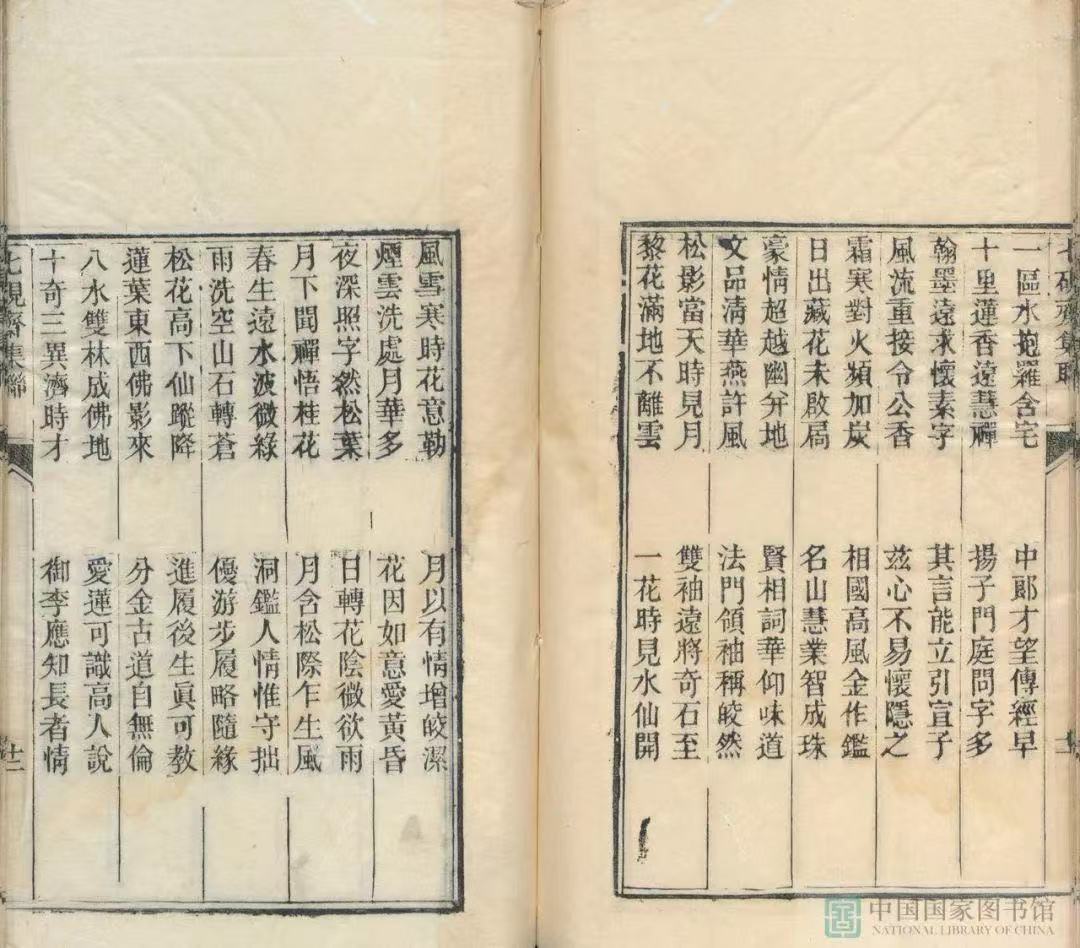 一區水抱羅含宅 中郎才望傳經早
十里蓮香遠慧禪 揚子門庭問字多
翰墨遠求懷素字 其言能立引宣子
風流重接令公香 茲心不易懷隱之
霜寒對火頻加炭 相國高風金作鑑
日出藏花未啟扃 名山慧業智成珠
豪情超越幽幷地 賢相詞華仰味道
文品清華燕許風 法門領袖稱皎然
松影當天時見月 雙袖遠將奇石至
黎花滿地不離雲 一花時見水仙開
風雪寒時花意勒 月以有情增皎潔
煙雲洗處月華多 花因如意愛黃昏
夜深照字然松葉 日轉花陰微欲雨
月下聞禪悟桂花 月含松際乍生風
春生遠水波微綠 洞鑑人情惟守拙
雨洗空山石轉蒼 優游步履略隨緣
松花高下仙蹤降 進履後生眞可教
蓮葉東西佛影來 分金古道自無倫
八水雙林成佛地 愛蓮可識高人說
十奇三異濟時才 御李應知長者情
齋集聯
十二
中国国家图书馆
NATIONAL LIBRARY OF CHINA